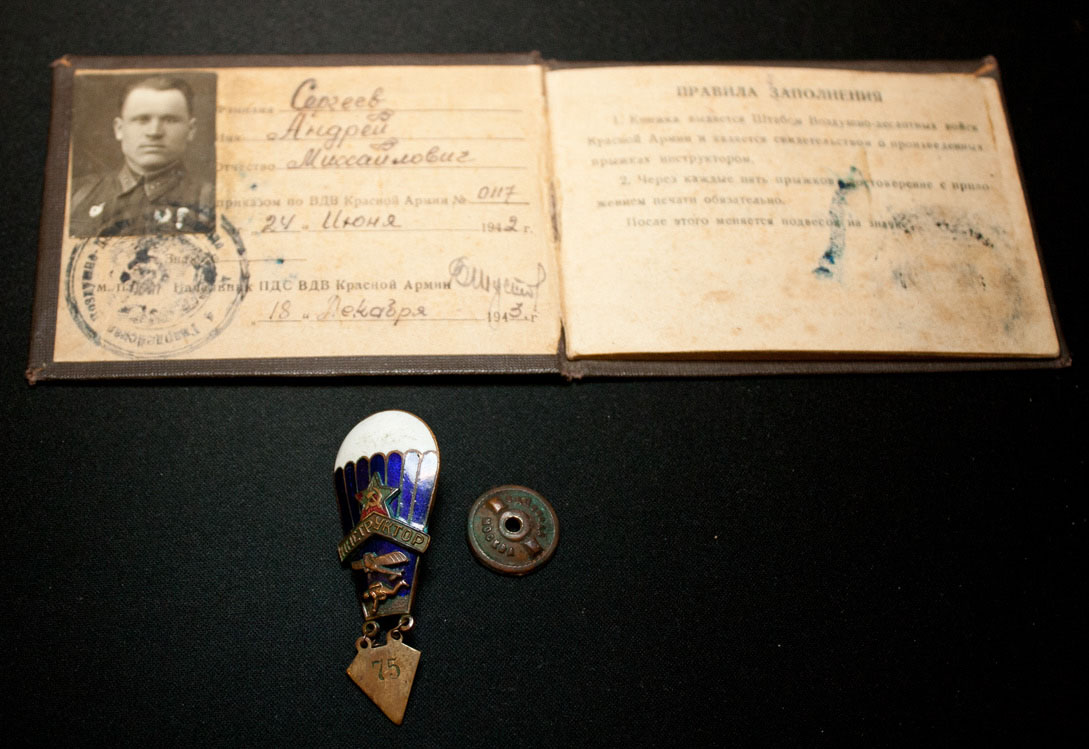 Фамилия Сергеев
Имя Андрей
Отчество Михайлович
приказом по ВДВ Красной Армии № 0117
24 " Июня 1942 г.
Начальник ПДС ВДВ Красной Армии
18 " Декабря 1943 г.
ПРАВИЛА ЗАПОЛНЕНИЯ
1. Книжка выдается Штабом Воздушно-десантных войск
Красной Армии и является свидетельством о произведенных
прыжках инструктором.
2. Через каждые пять прыжков удостоверение с прило-
жением печати обязательно.
После этого меняется подвесок на
ИНСТРУКТОР
75
МОСКВА